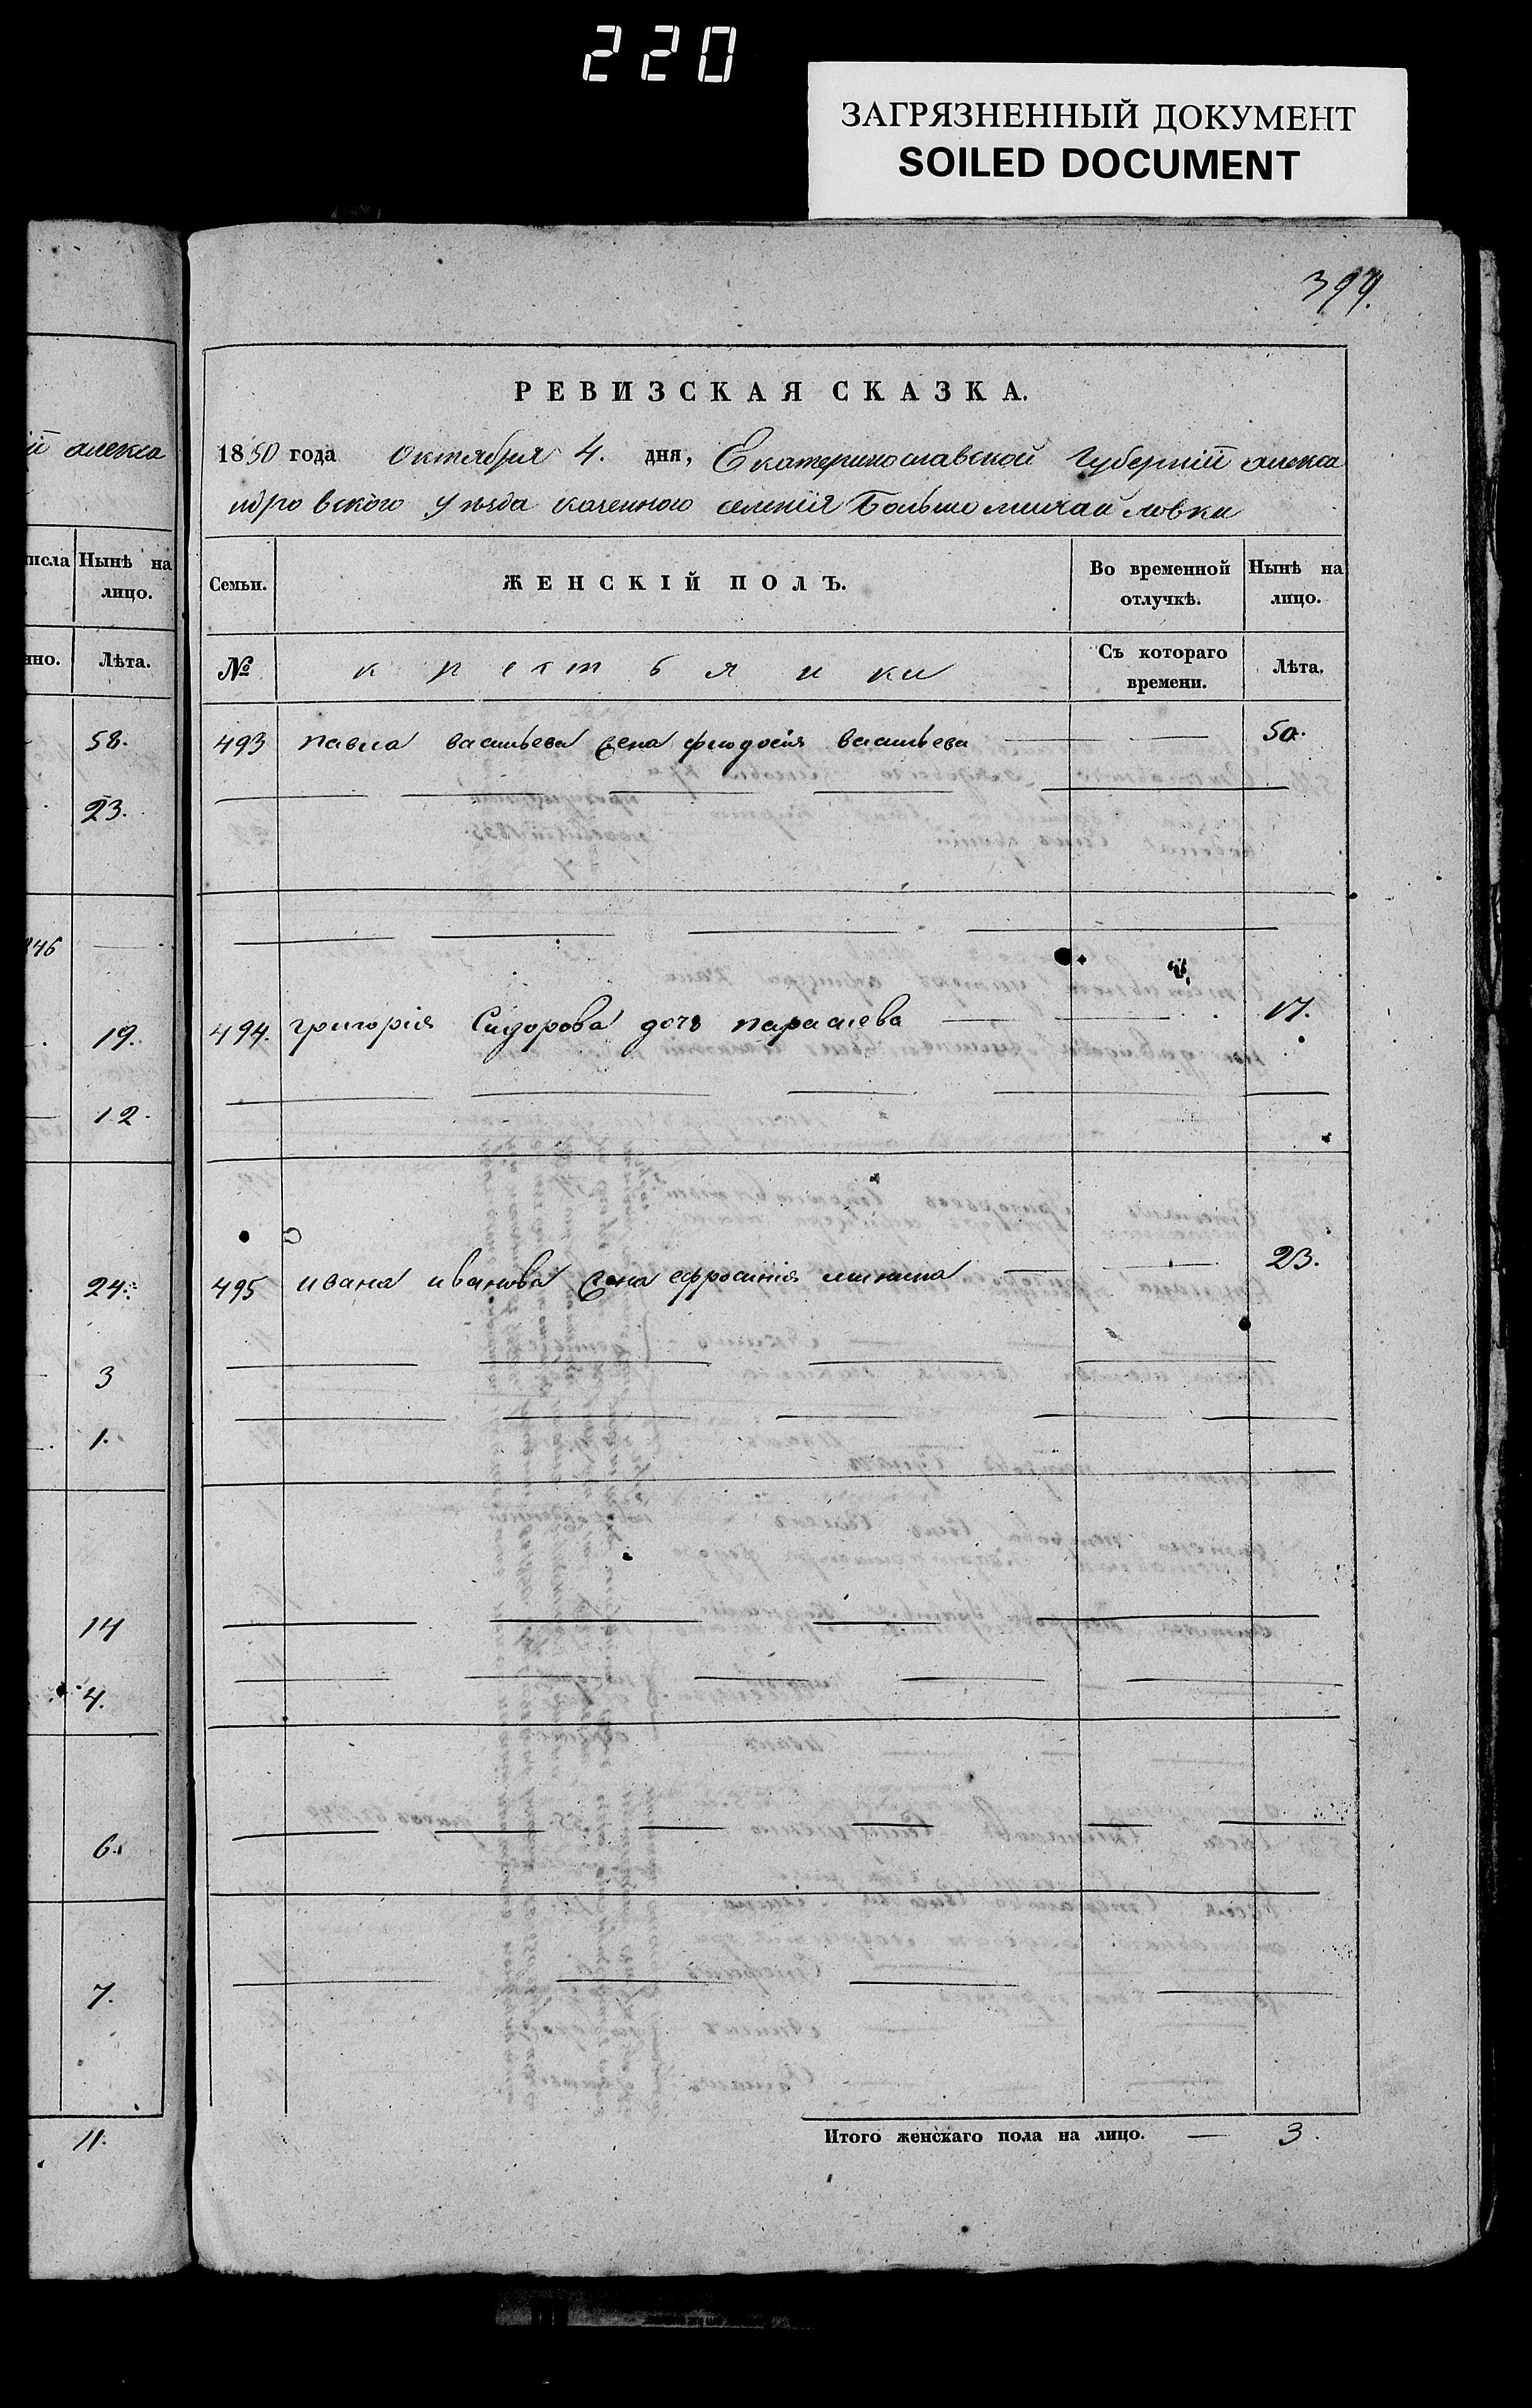 220
ЗАГРЯЗНЕННЫЙ ДОКУМЕНТ
SOILED DOCUMENT
й алекса
исла Нынѣ на лицо.
нно. Лѣта.
58.
23.
846
19.
12.
24.
3
1.
14
4.
6.
7.
11.
399.
РЕВИЗСКАЯ СКАЗКА.
1850 года октября 4. дня, Екатеринославской Губернїи алекса
ндровского Уѣзда казенного селенїя Большомихайловки
Семьи. ЖЕНСКІЙ ПОЛЪ. Во временной отлучкѣ. Нынѣ на лицо.
№ крестьянки Съ котораго времени. Лѣта.
493 павла васильева жена феодосия васильева 50.
494. григорія Сидорова дочь параскева 17.
495 ивана иванова жена ефросинія минина 23.
Итого женскаго пола на лицо. — 3.